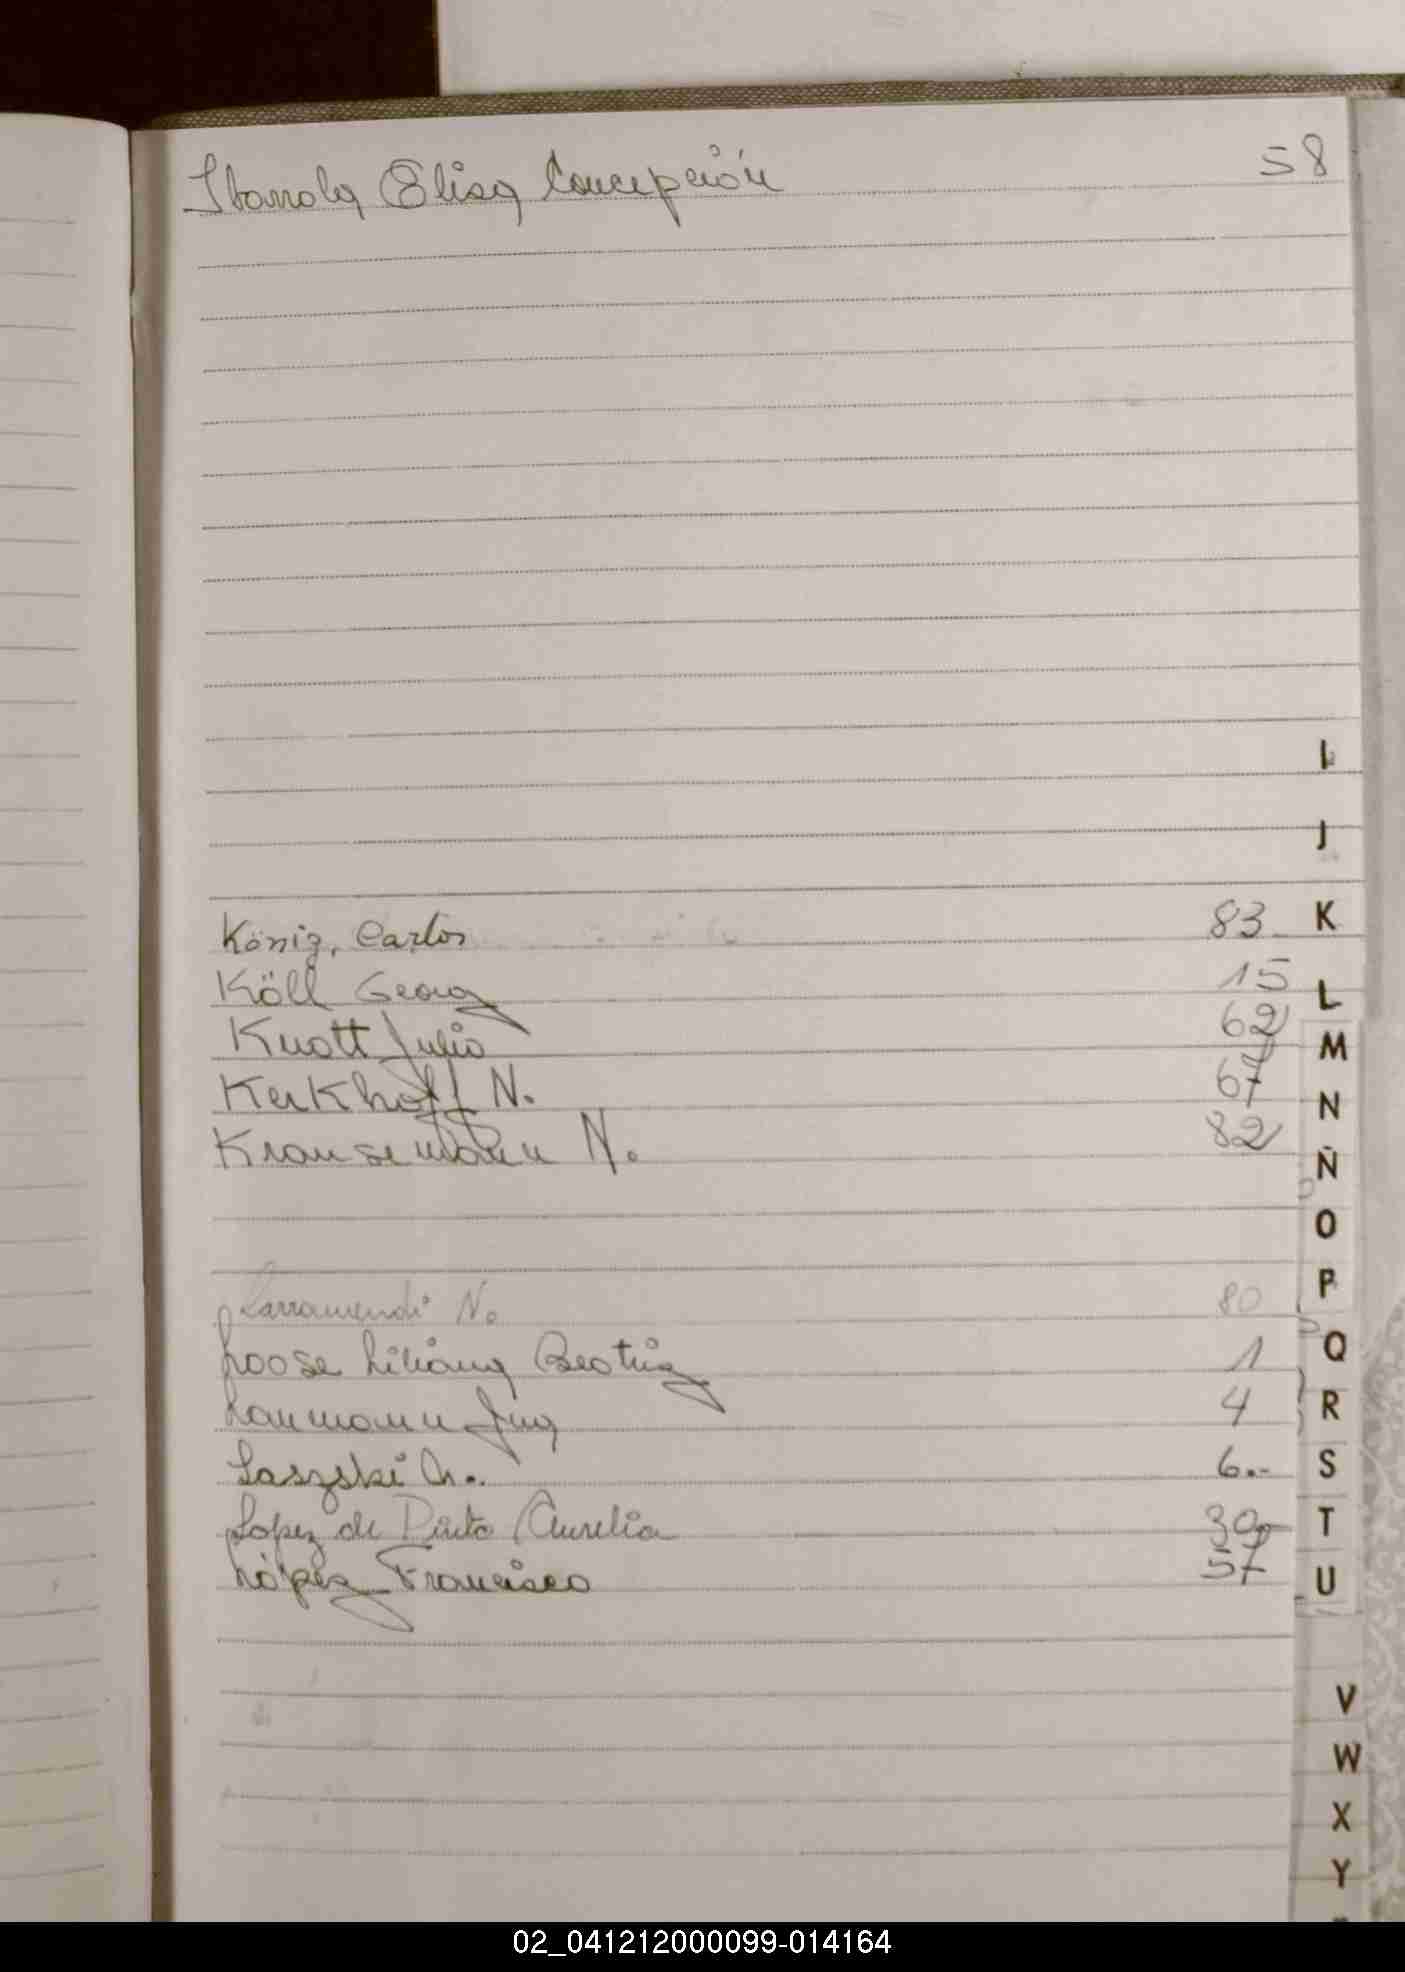 Ibarrola Elisa Concepción 58
I
J
König, Carlos 83 K
Köll Georg 15 L
Knott Julio 62 M
Kerkhoff N. 67 N
Krausemann N. 82 Ñ
O
Larramendi N. 80 P
Loose Liliana Beatriz 1 Q
Laumann 4 R
Laszski 6.- S
Lopez de Pinto Aurelia 30 T
López Francisco 57 U
V
W
X
Y
02_041212000099-014164